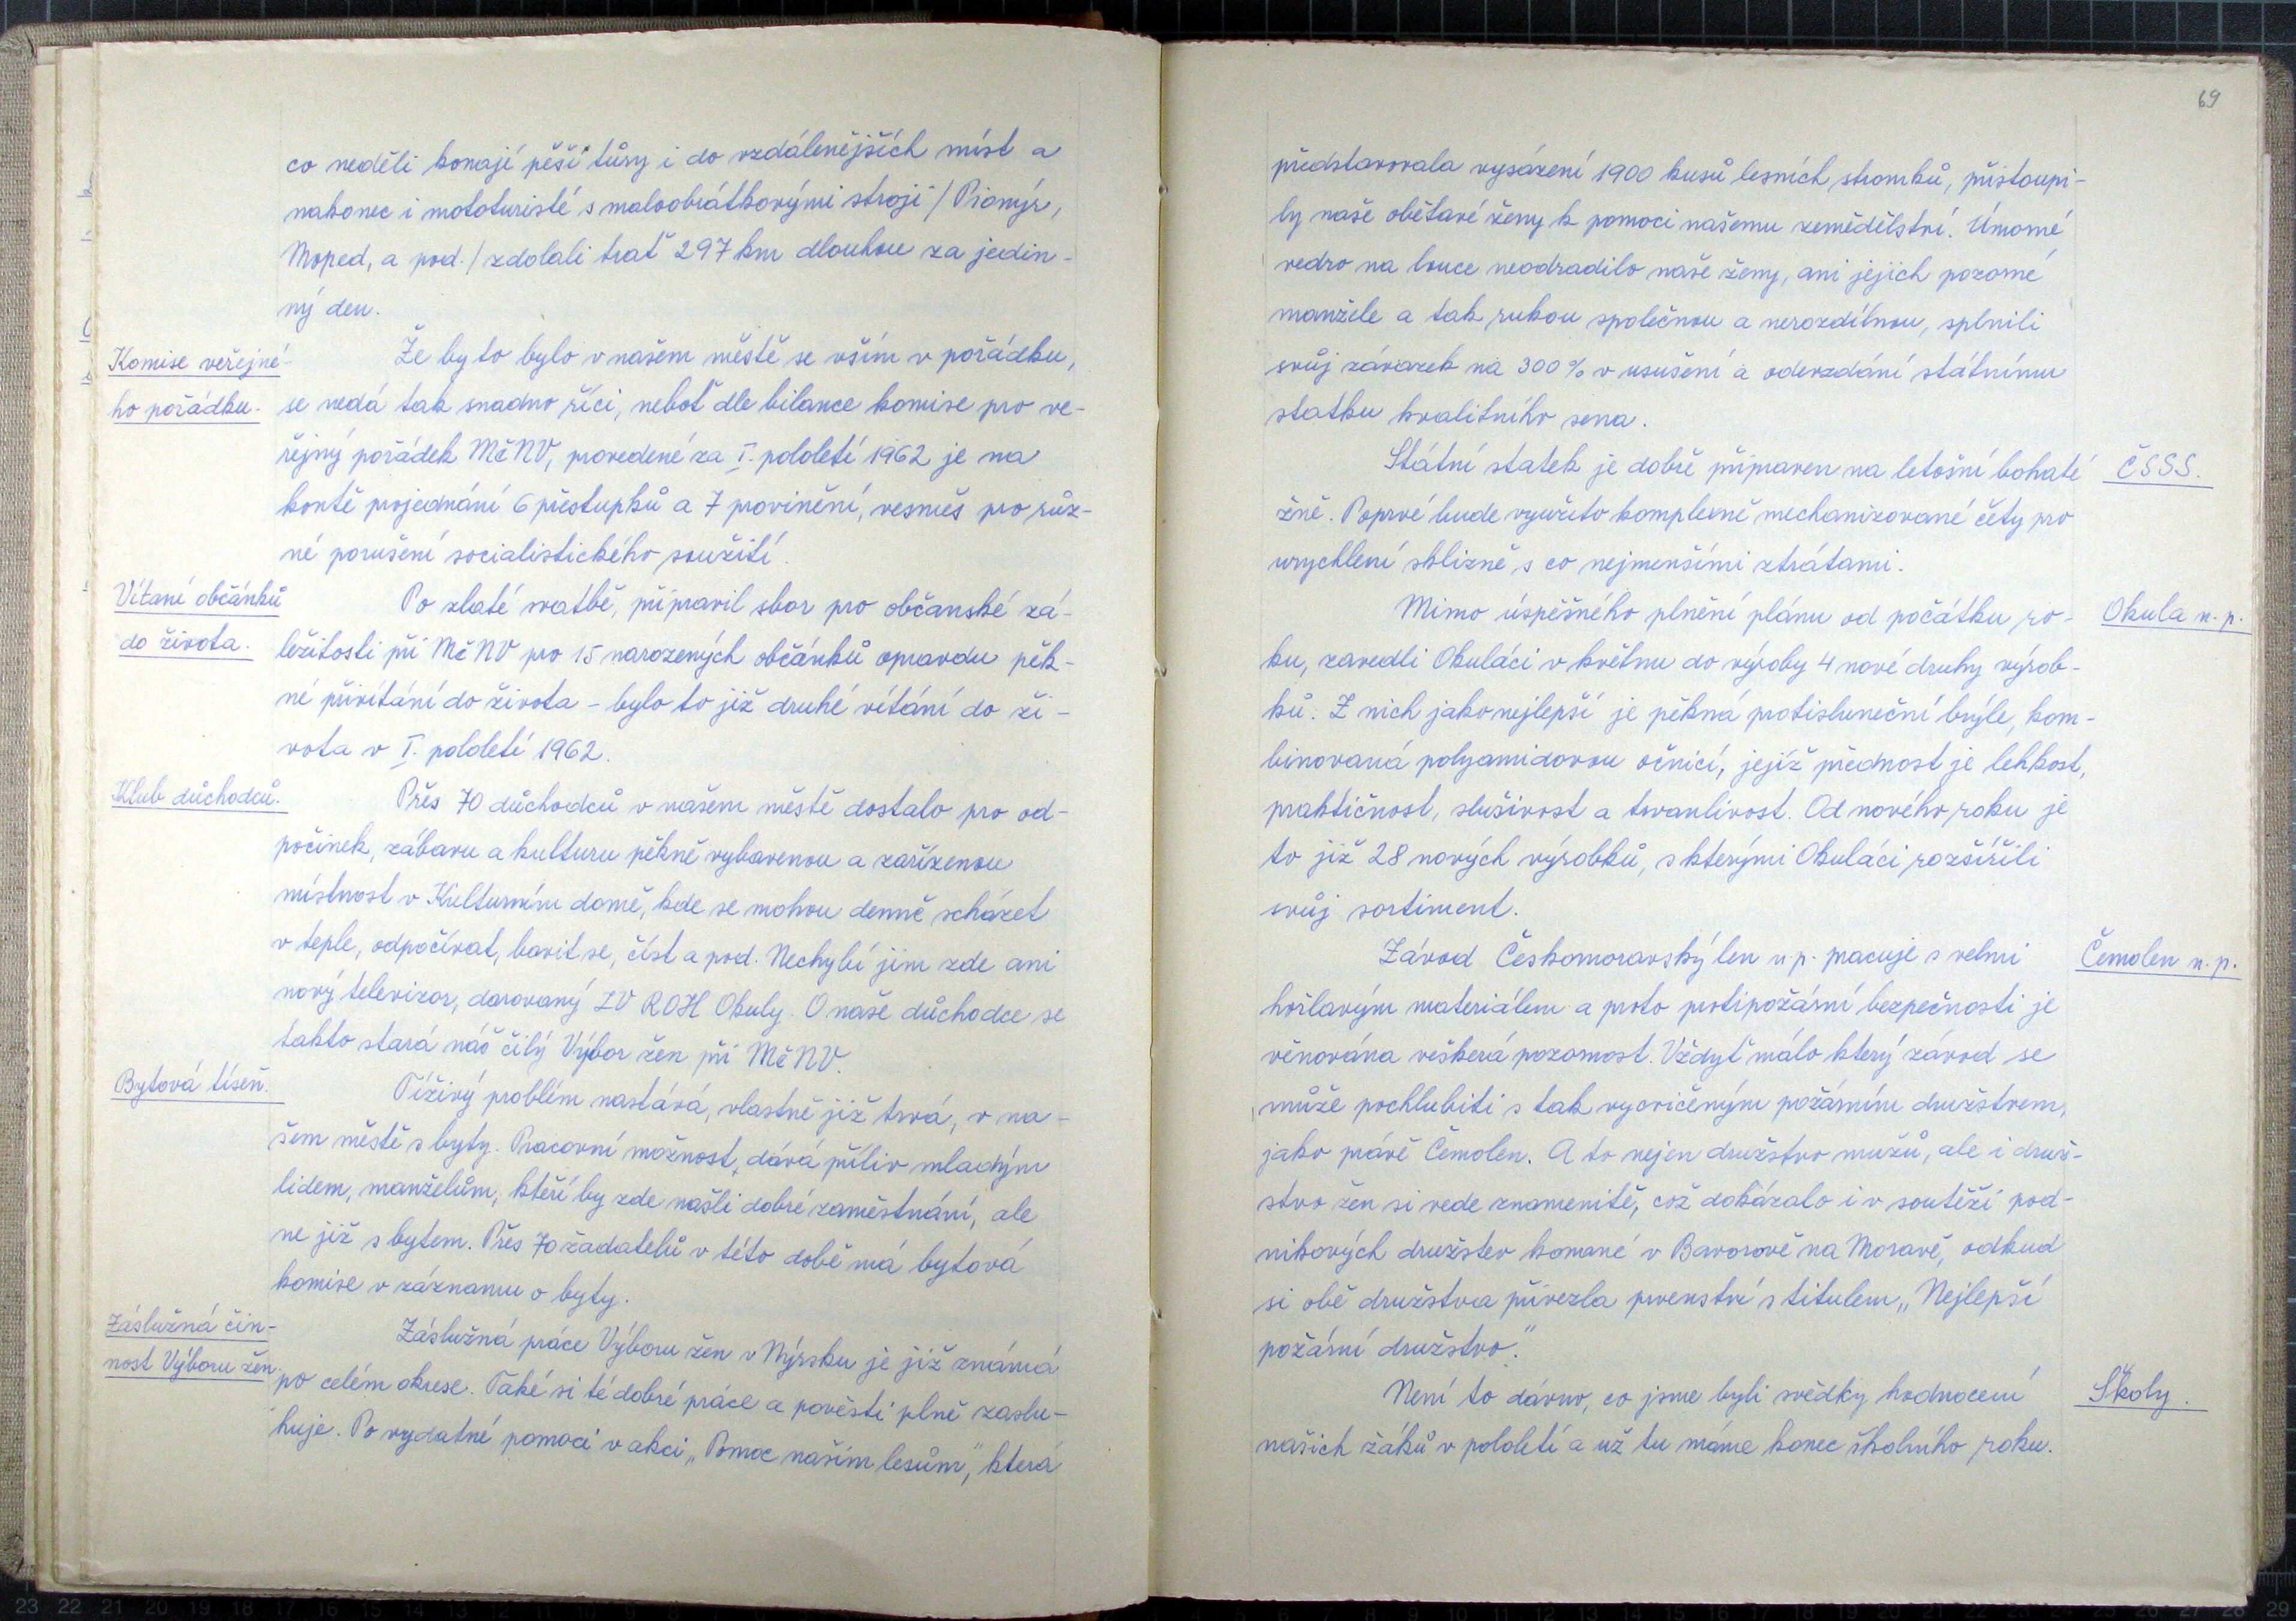 co neděli konají pěší tůry i do vzdálenějších míst a
nakonec i mototuristé s maloobrátkovými stroji / Pionýr,
Moped, a pod. / zdolali trať 297 km dlouhou za jedin-
ný den.
Komise veřejné-
ho pořádku.
Že by to bylo v našem městě se vším v pořádku,
se nedá tak snadno říci, neboť dle bilance komise pro ve-
řejný pořádek MěNV, provedené za I. pololetí 1962 je na
kontě projednání 6 přestupků a 7 provinění, vesměs pro růz-
né porušení socialistického soužití.
Vítání občánků
do života.
Po zlaté svatbě, připravil sbor pro občanské zá-
ležitosti při MěNV pro 15 narozených občánků opravdu pěk-
né přivítání do života - bylo to již druhé vítání do ži-
vota v I. pololetí 1962.
Klub důchodců.
Přes 70 důchodců v našem městě dostalo pro od-
počinek, zábavu a kulturu pěkně vybavenou a zařízenou
místnost v Kulturním domě, kde se mohou denně scházet
v teple, odpočívat, bavit se, číst a pod. Nechybí jim zde ani
nový televizor, darovaný ZV ROH Okuly. O naše důchodce se
takto stará náš čilý Výbor žen při MěNV.
Bytová tíseň.
Tíživý problém nastává, vlastně již trvá, v na-
šem městě s byty. Pracovní možnost, dává příliv mladým
lidem, manželům, kteří by zde našli dobré zaměstnání, ale
ne již s bytem. Přes 70 žadatelů v této době má bytová
komise v záznamu o byty.
Záslužná čin-
nost Výboru žen.
Záslužná práce Výboru žen v Nýrsku je již známá
po celém okrese. Také si té dobré práce a pověsti plně zaslu-
huje. Po vydatné pomoci v akci „Pomoc našim lesům", která
69
představovala vysázení 1900 kusů lesních stromků, přistoupi-
ly naše obětavé ženy k pomoci našemu zemědělství. Úmorné
vedro na louce neodradilo naše ženy, ani jejich pozorné
manžele a tak rukou společnou a nerozdílnou, splnili
svůj závazek na 300% v usušení a odevzdání státnímu
statku kvalitního sena.
Státní statek je dobře připraven na letošní bohaté
ČSSS.
žně. Poprvé bude využito komplexně mechanizované čety pro
urychlení sklizně s co nejmenšími ztrátami.
Mimo úspěšného plnění plánu od počátku ro-
Okula n. p.
ku, zavedli Okuláci v květnu do výroby 4 nové druhy výrob-
ků. Z nich jako nejlepší je pěkná protisluneční brýle, kom-
binovaná polyamidovou očnicí, jejíž přednost je lehkost,
praktičnost, slušivost a trvanlivost. Od nového roku je
to již 28 nových výrobků, s kterými Okuláci rozšířili
svůj sortiment.
Závod Českomoravský len n p. pracuje s velmi
Čemolen n. p.
hořlavým materiálem a proto protipožární bezpečnosti je
věnována veškerá pozornost. Vždyť málo který závod se
může pochlubiti s tak vycvičeným požárním družstvem,
jako právě Čemolen. A to nejen družstvo mužů, ale i druž-
stvo žen si vede znamenitě, což dokázalo i v soutěži pod-
nikových družstev konané v Bavorově na Moravě, odkud
si obě družstva přivezla prvenství s titulem „Nejlepší
požární družstvo".
Není to dávno, co jsme byli svědky hodnocení
Školy.
našich žáků v pololetí a už tu máme konec školního roku.